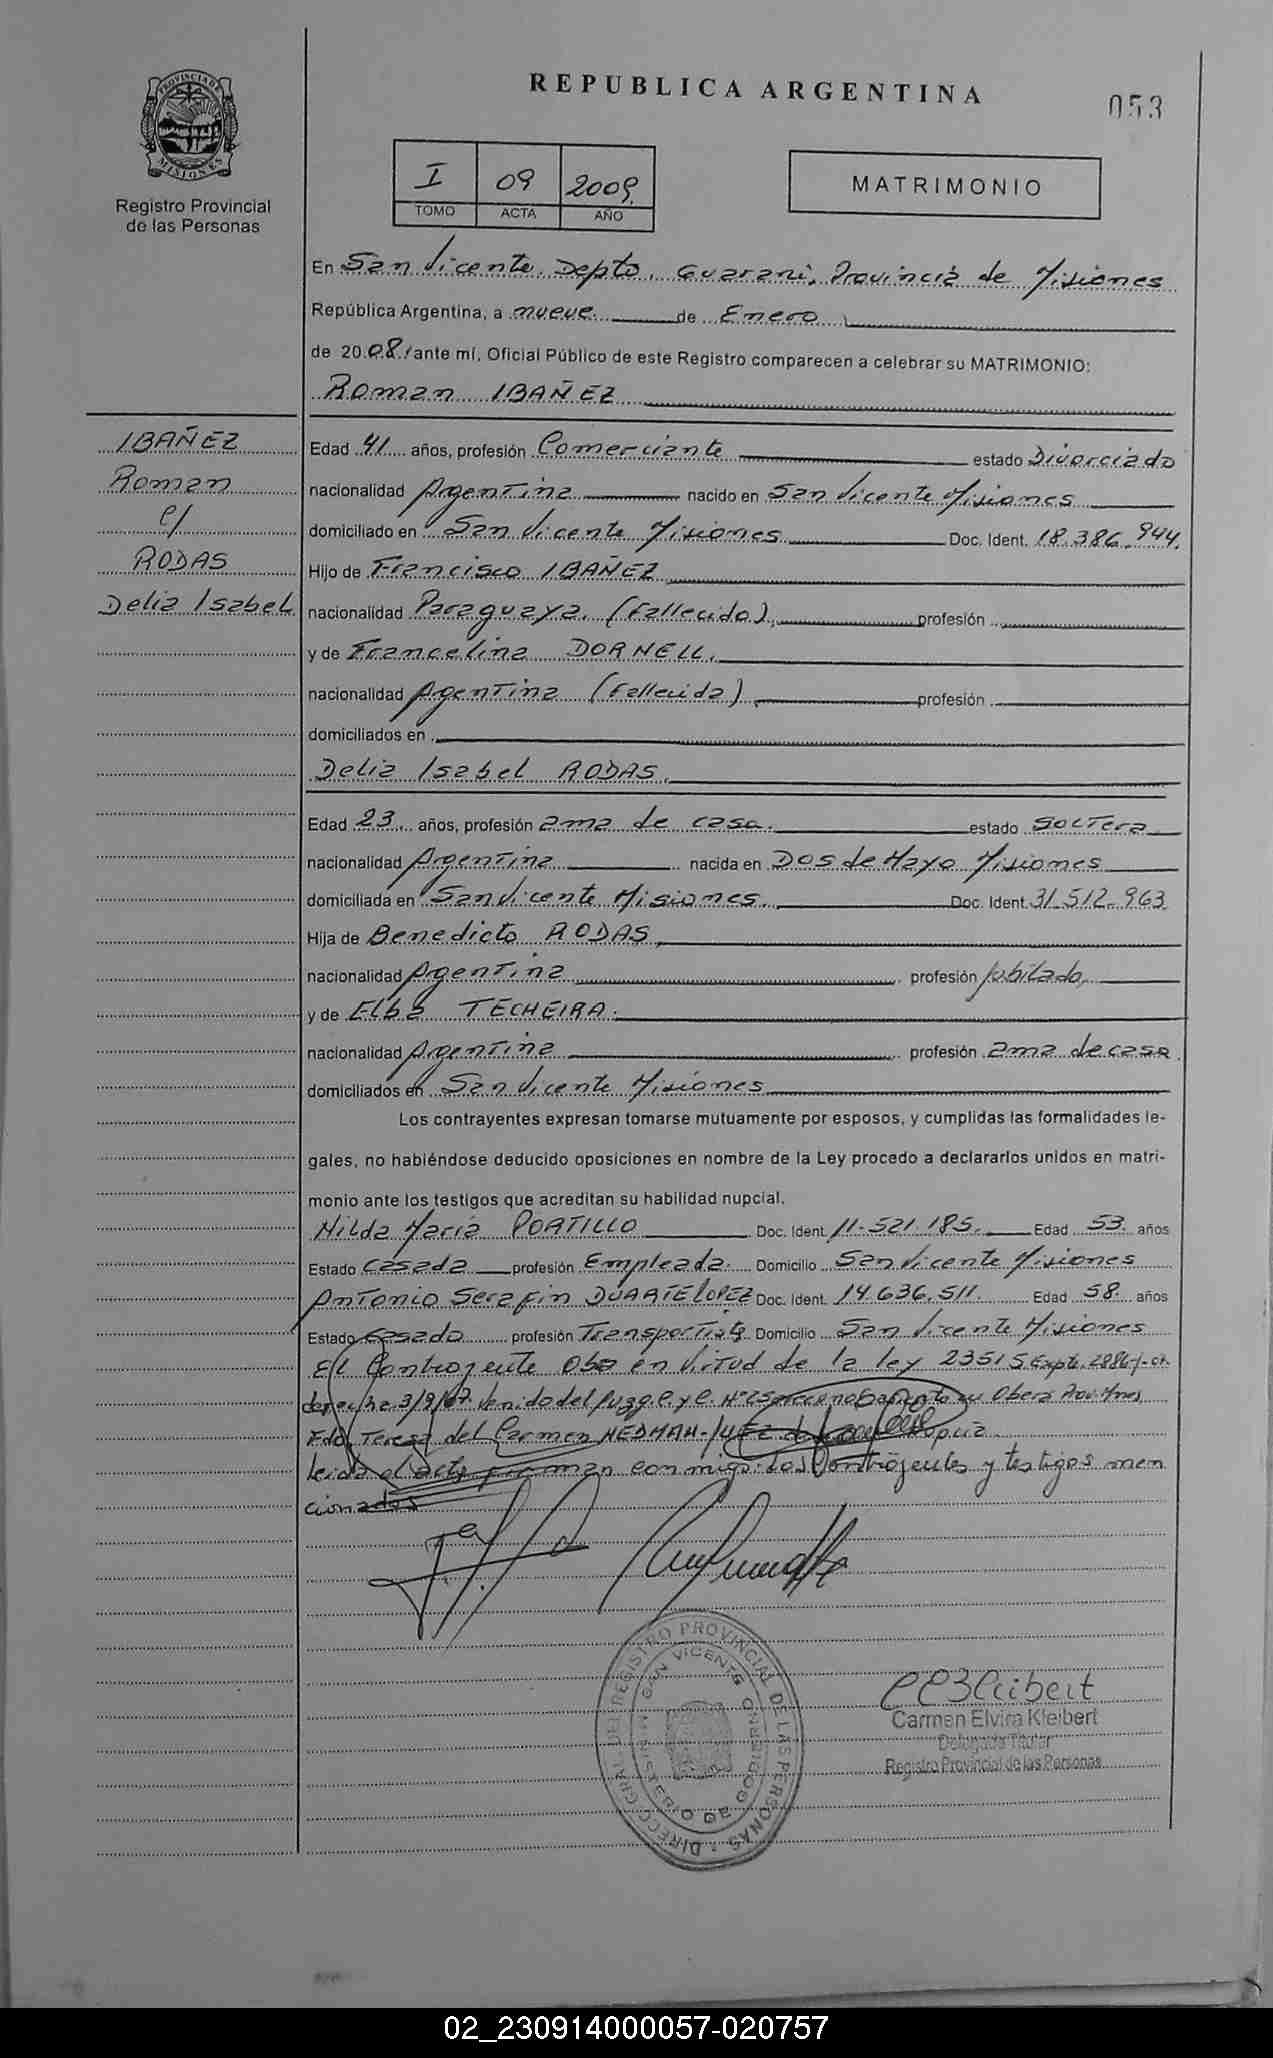 REPUBLICA ARGENTINA
053
PROVINCIA DE MISIONES
Registro Provincial
de las Personas
I 09 2009
TOMO ACTA AÑO
MATRIMONIO
En San Vicente, Depto. Guarani, Provincia de Misiones
República Argentina, a nueve de Enero
de 2008, ante mí, Oficial Público de este Registro comparecen a celebrar su MATRIMONIO:
Roman IBAÑEZ
IBAÑEZ
Roman
c/
RODAS
Delia Isabel
Edad 41 años, profesión Comerciante estado Divorciado
nacionalidad Argentina nacido en San Vicente Misiones
domiciliado en San Vicente Misiones Doc. Ident. 18.386.944.
Hijo de Francisco IBAÑEZ
nacionalidad Paraguaya. (Fallecido), profesión
y de Francelina DORNELL,
nacionalidad Argentina (Fallecida), profesión
domiciliados en
Delia Isabel RODAS,
Edad 23. años, profesión ama de casa. estado Soltera
nacionalidad Argentina nacida en Dos de Mayo Misiones
domiciliada en San Vicente Misiones. Doc. Ident. 31.512.963
Hija de Benedicto RODAS,
nacionalidad Argentina profesión Jubilado,
y de Elba TECHEIRA.
nacionalidad Argentina profesión ama de casa.
domiciliados en San Vicente Misiones
Los contrayentes expresan tomarse mutuamente por esposos, y cumplidas las formalidades le-
gales, no habiéndose deducido oposiciones en nombre de la Ley procedo a declararlos unidos en matri-
monio ante los testigos que acreditan su habilidad nupcial.
Hilda María PORTILLO Doc. Ident. 11.521.185. Edad 53. años
Estado Casada profesión Empleada. Domicilio San Vicente Misiones
Antonio Serafin DUARTE LOPEZ Doc. Ident. 14.636.511. Edad 58. años
Estado Casado profesión Transportista Domicilio San Vicente Misiones
El Contrayente en virtud de la ley 23515 Expte.
de fecha 3/9/07. venido del Juzg. C. y C. Nº 2 Oberá Prov. Mnes
Fdo. Teresa del Carmen HEDMAN-JUEZ
leida el acta firman conmigo los Contrayentes y testigos men
cionados
DIRECC. GRAL. DEL REGISTRO PROVINCIAL DE LAS PERSONAS
SAN VICENTE
MINISTERIO DE GOBIERNO
Carmen Elvira Kleibert
Delegada Titular
Registro Provincial de las Personas
02_230914000057-020757